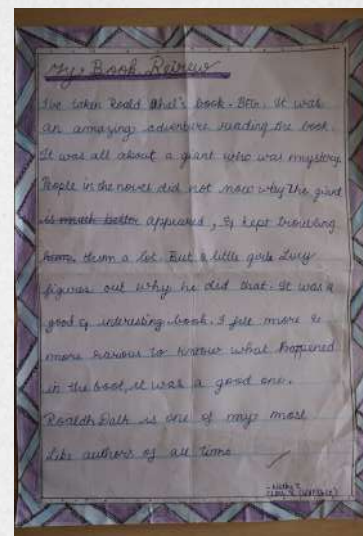 My Book Review
I've taken Roald Dhal's book - BFG. It was
an amazing adventure reading the book.
It was all about a giant who was mystery.
People in the novel did not now why the giant
is much better appeared, & kept troubling
them a lot. But a little girl Lucy
figures out why he did that. It was a
good & interesting book. I felt more &
more to know what happened
in the book, it was a good one.
Roaldh Dalh is one of my most
like authors of all time